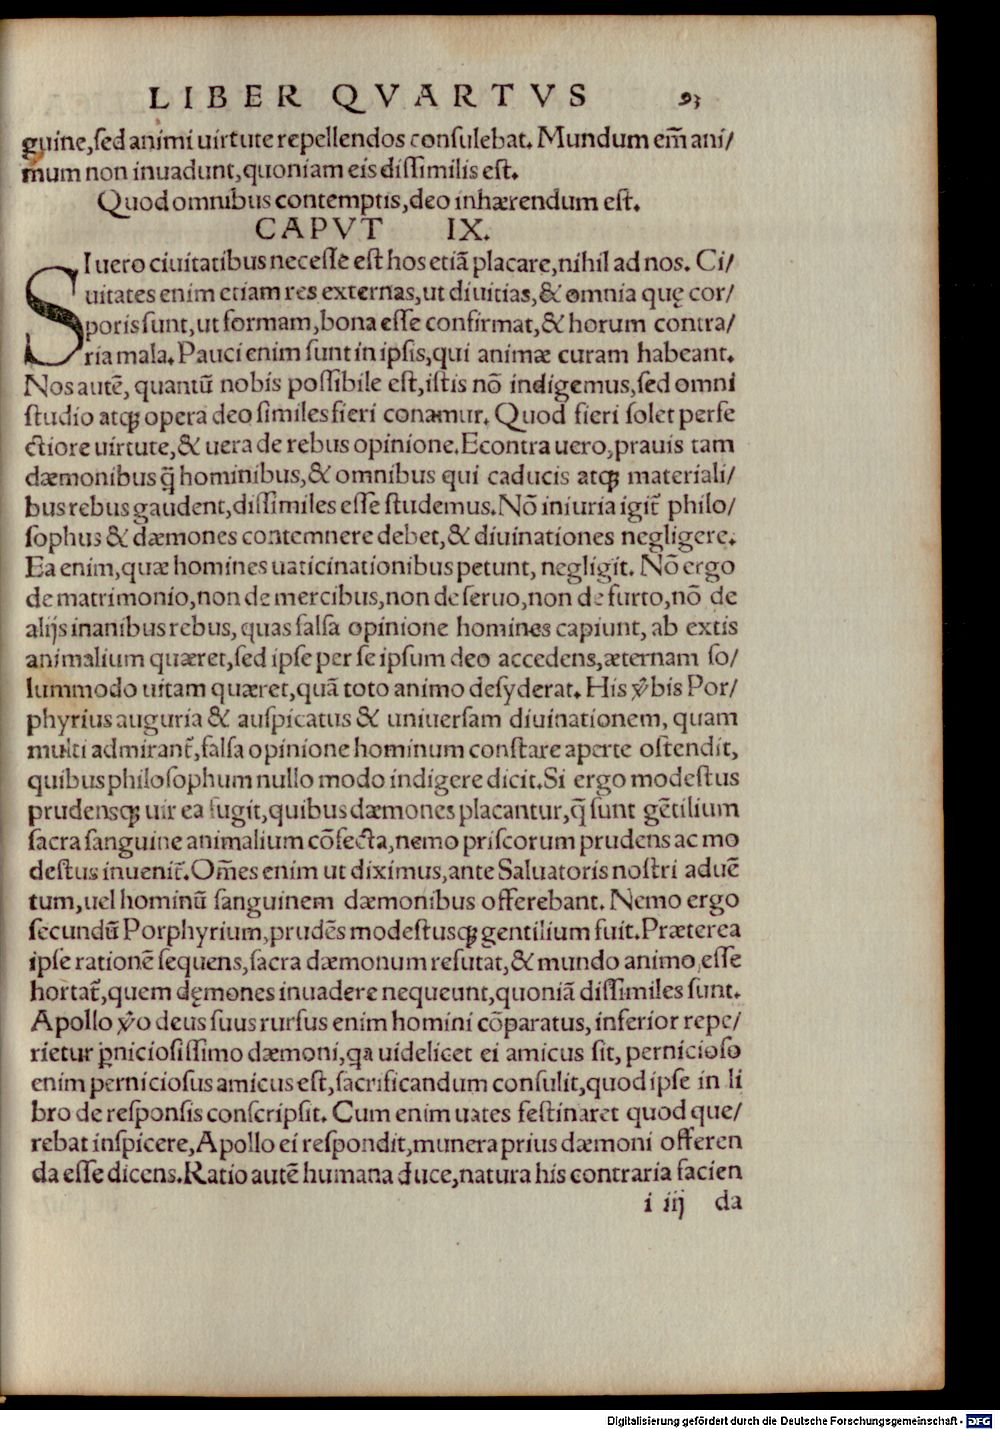 LIBER QVARTVS 93
guine,ſed animi uirtute repellendos conſulebat. Mundum em̄ ani/
mum non inuadunt,quoniam eis diſſimilis eſt.
Quod omnibus contemptis,deo inhærendum eſt.
CAPVT IX.
SI uero ciuitatibus neceſſe eſt hos etiã placare,nihil ad nos. Ci/
uitates enim etiam res externas,ut diuitias,& omnia quę cor/
poris ſunt,ut formam,bona eſſe confirmat,& horum contra/
ria mala. Pauci enim ſunt in ipſis,qui animæ curam habeant.
Nos autē, quantũ nobis poſſibile eſt,iſtis nõ indigemus,ſed omni
ſtudio atqꝫ opera deo ſimiles fieri conamur. Quod fieri ſolet perfe
ctiore uirtute,& uera de rebus opinione.Econtra uero,prauis tam
dæmonibus q̃ hominibus,& omnibus qui caducis atqꝫ materiali/
bus rebus gaudent,diſſimiles eſſe ſtudemus.Nõ iniuria igit̃ philo/
ſophus & dæmones contemnere debet,& diuinationes negligere.
Ea enim,quæ homines uaticinationibus petunt, negligit. Nõ ergo
de matrimonio,non de mercibus,non de ſeruo,non de furto,nõ de
alijs inanibus rebus, quas falſa opinione homines capiunt, ab extis
animalium quæret,ſed ipſe per ſe ipſum deo accedens,æternam ſo/
lummodo uitam quæret,quã toto animo deſyderat. His v̂bis Por/
phyrius auguria & auſpicatus & uniuerſam diuinationem, quam
multi admirant̃,falſa opinione hominum conſtare aperte oſtendit,
quibus philoſophum nullo modo indigere dicit.Si ergo modeſtus
prudensqꝫ uir ea fugit,quibus dæmones placantur,q̃ ſunt gẽtilium
ſacra ſanguine animalium cõfecta,nemo priſcorum prudens ac mo
deſtus inuenit̃.Om̃es enim ut diximus,ante Saluatoris noſtri aduē
tum,uel hominũ ſanguinem dæmonibus offerebant. Nemo ergo
ſecundũ Porphyrium,prudẽs modeſtusqꝫ gentilium fuit.Præterea
ipſe rationē ſequens,ſacra dæmonum refutat,& mundo animo eſſe
hortat̃,quem dęmones inuadere nequeunt,quoniã diſſimiles ſunt.
Apollo v̂o deus ſuus rurſus enim homini cõparatus, inferior repe/
rietur ꝑnicioſiſſimo dæmoni,qa uidelicet ei amicus ſit, pernicioſo
enim pernicioſus amicus eſt,ſacrificandum conſulit,quod ipſe in li
bro de reſponſis conſcripſit. Cum enim uates feſtinaret quod que/
rebat inſpicere,Apollo ei reſpondit,munera prius dæmoni offeren
da eſſe dicens.Ratio autē humana duce,natura his contraria facien
i iij da
Digitalisierung gefördert durch die Deutsche Forschungsgemeinschaft - DFG